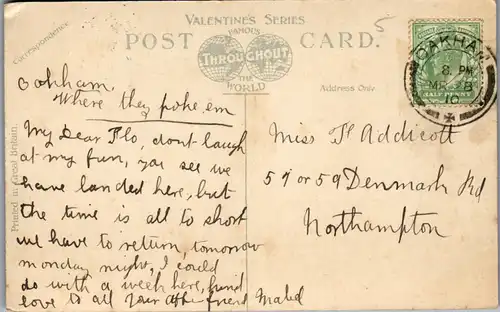 VALENTINE'S SERIES
FAMOUS
POST CARD.
THROUGHOUT
THE WORLD
Correspondence
Address Only
Printed in Great Britain.
5
OAKHAM
8 PM
MR 8
10
HALF PENNY
Oakham.
Where they poke em
My Dear Flo, dont laugh
at my fun, you see we
have landed here, but
the time is all to short
we have to return, tomorrow
monday night, I could
do with a week here, fond
love to all your aff friend Mabel
Miss F Addicott
57 or 59 Denmark Rd
Northampton